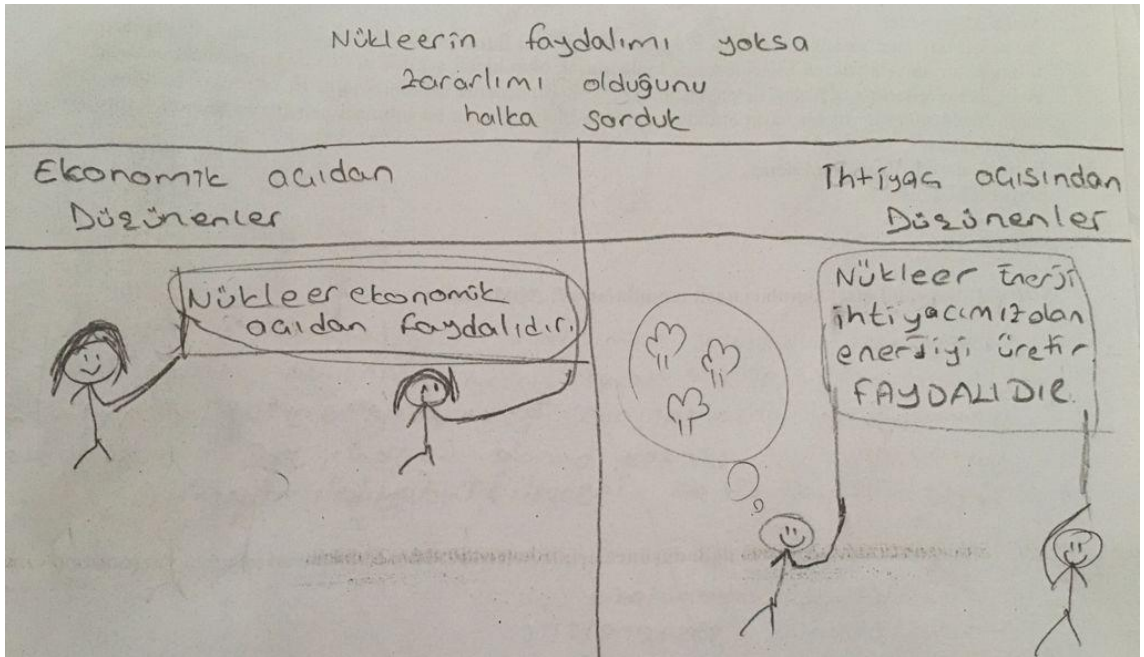 Nükleerin faydalımı yoksa
zararlımı olduğunu
halka sorduk
Ekonomik açıdan
Düşünenler
İhtiyaç açısından
Düşünenler
Nükleer ekonomik
açıdan faydalıdır.
Nükleer Enerji
ihtiyacımız olan
enerjiyi üretir
FAYDALIDIR.